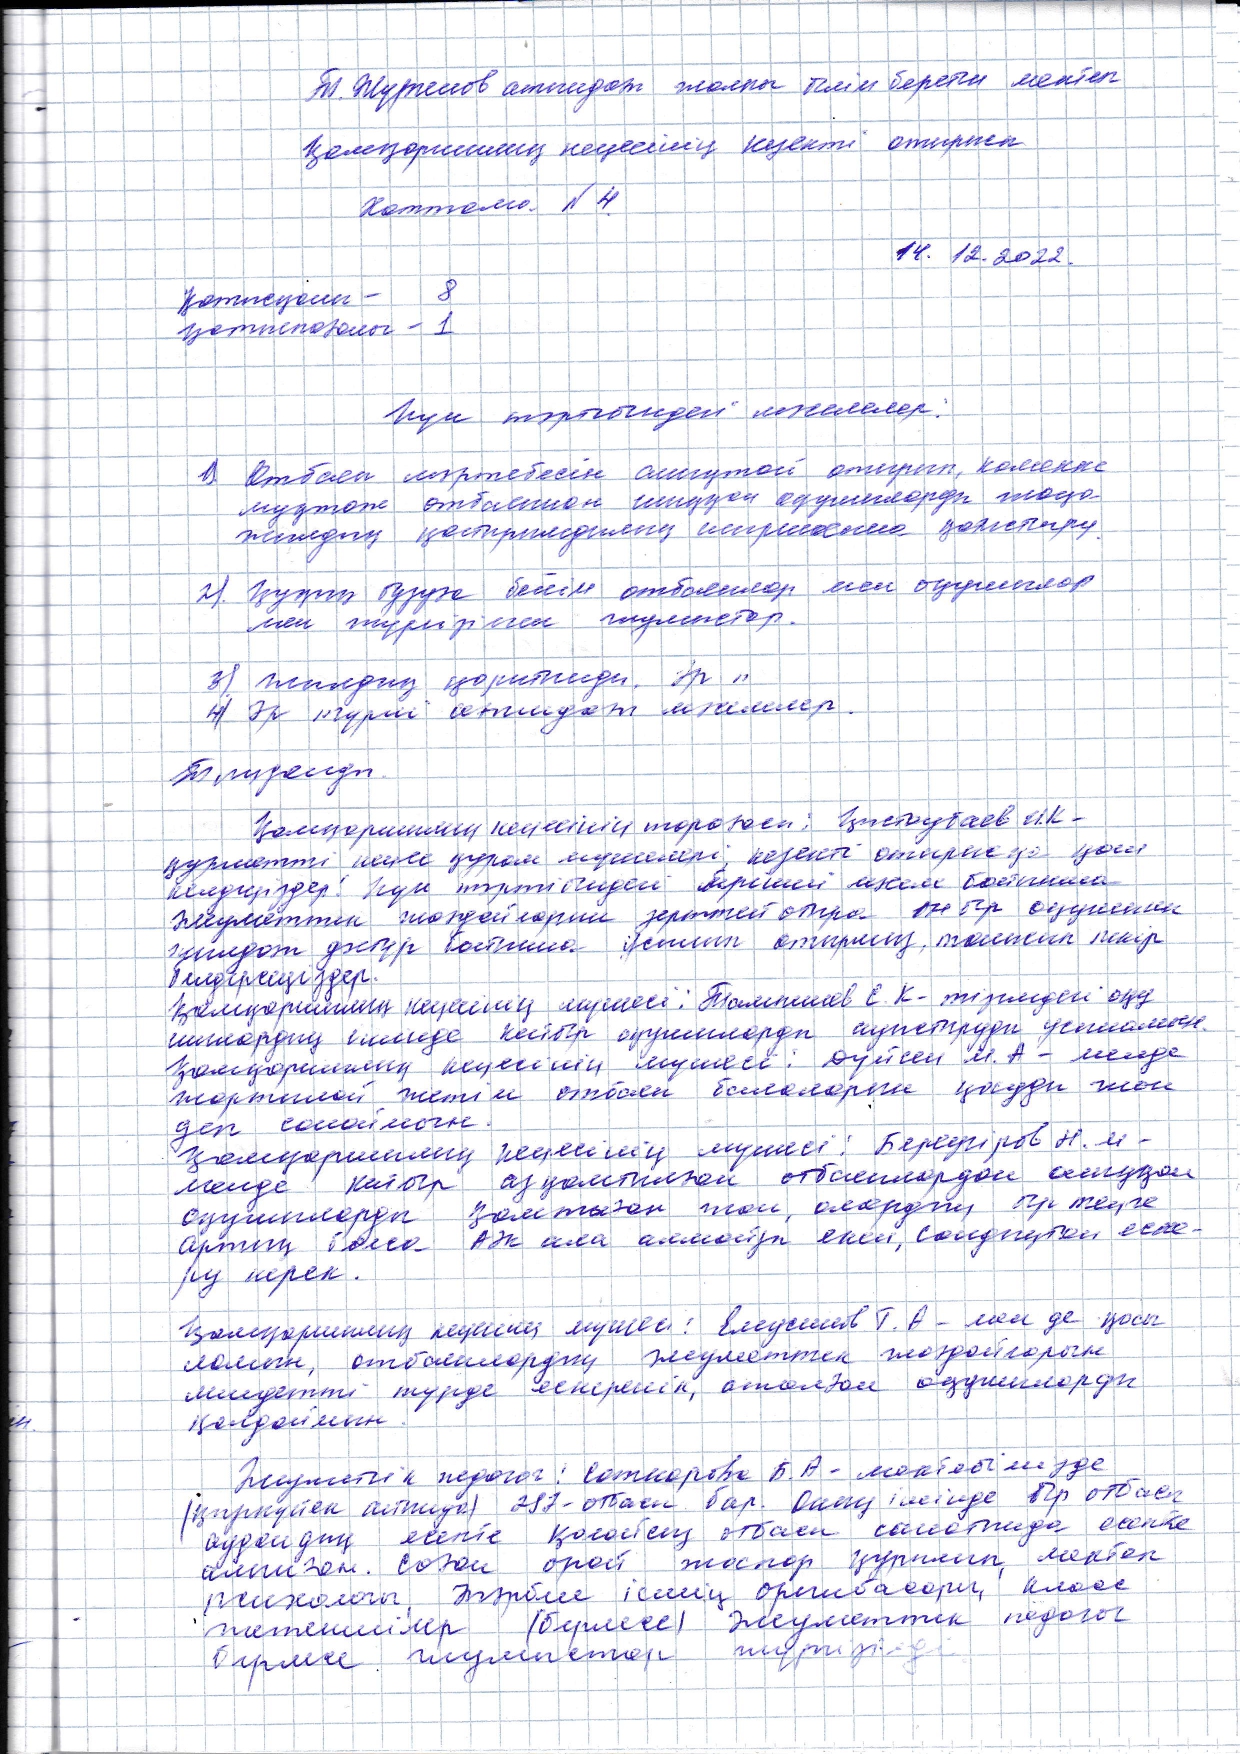 Т. Жүргенов атындағы жалпы білім беретін мектеп
Қамқоршылық кеңесінің кезекті отырысы
Хаттама № 4.
14. 12. 2022.
Қатысқаны - 8
Қатыспағаны - 1
Күн тәртібіндегі мәселелер:
1) Отбасы мәртебесін анықтай отырып, көмекке
мұқтаж отбасынан шыққан оқушыларды жаңа
жылдық қайырымдылық шыршасына қатыстыру.
2). Құқық бұзуға бейім отбасылар мен оқушылар
мен жүргізілген жұмыстар.
3) Жылдық қорытынды.
4) Әр түрлі ағымдағы мәселелер.
Тыңдалды.
Қамқоршылық кеңесінің төрағасы: И.К -
құрметті кеңес құрам мүшелері, кезекті отырысқа қош
келдіңіздер! Күн тәртібіндегі бірінші мәселе бойынша
әлеуметтік жағдайларын зерттей отыра әр бір оқушының
бойынша ұсынып отырмыз, пікір
білдіріңіздер.
Қамқоршылық кеңесінің мүшесі: С. К - тізімдегі оқу
шылардың ішінде кейбір оқушыларды ауыстыруды ұсынамын.
Қамқоршылық кеңесінің мүшесі: Дүйсен М. А - менде
жартылай жетім отбасы балаларын қосуды жөн
деп санаймын.
Қамқоршылық кеңесінің мүшесі: Н. М -
менде кейбір аз қамтылған отбасылардан шыққан
оқушыларды қамтыған жөн, олардың бір теңге
артық болса АӘК ала алмайды екен, сондықтан еске-
ру керек.
Қамқоршылық кеңесінің мүшесі: Г. А - мен де қосы
ламын, отбасылардың әлеуметтік жағдайларын
міндетті түрде ескерейік, аталған оқушыларды
қолдаймын.
Әлеуметтік педагог: Б. А - мектебімізде
(қыркүйек айында) 297 - отбасы бар. Оның ішінде бір отбасы
аудандық есепте қолайсыз отбасы санатында есепке
алынған. Соған орай жоспар құрылып, мектеп
психологы, тәрбие ісінің орынбасары, класс
жетекшілер (бірлесе) Әлеуметтік педагог
бірлесе жұмыстар жүргізілді